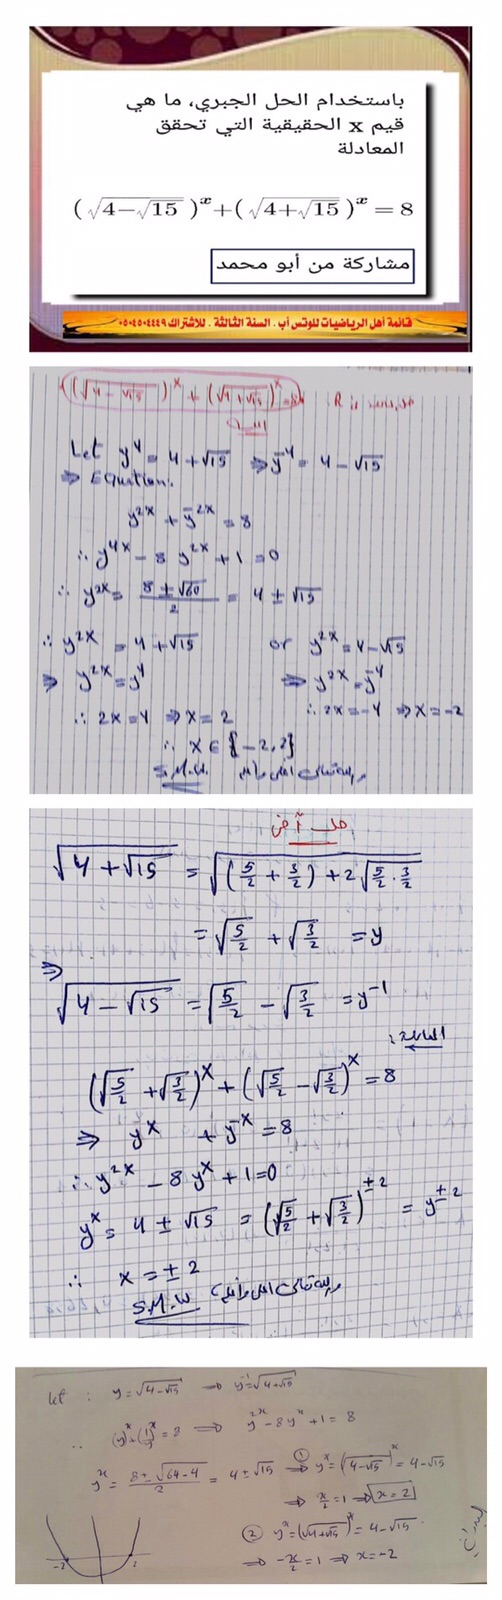 باستخدام الحل الجبري، ما هي
قيم x الحقيقية التي تحقق
المعادلة
(√(4−√15))^x+(√(4+√15))^x=8
مشاركة من أبو محمد
قائمة أهل الرياضيات للوتس أب . السنة الثالثة . للاشتراك ٠٥٠٤٥٠٤٤٤٩
(√(4−√15))^x + (√(4+√15))^x
Let y^4 = 4+√15 ⇒ y^-4 = 4−√15
⇒ Equation:
y^2x + y^-2x = 8
∴ y^4x − 8 y^2x + 1 = 0
∴ y^2x = (8 ± √60)/2 = 4 ± √15
∴ y^2x = 4+√15 or y^2x = 4−√15
⇒ y^2x = y^4 ⇒ y^2x = y^-4
∴ 2x=4 ⇒ x=2 ∴ 2x=-4 ⇒ x=-2
∴ x ∈ {-2,2}
S.M.W. والله تعالى أعلى وأعلم
حل آخر
√(4+√15) = √((5/2 + 3/2) + 2√(5/2 · 3/2))
= √(5/2) + √(3/2) = y
⇒
√(4−√15) = √(5/2) − √(3/2) = y^-1
المعادلة:
(√(5/2) + √(3/2))^x + (√(5/2) − √(3/2))^x = 8
⇒ y^x + y^-x = 8
∴ y^2x − 8y^x + 1 = 0
y^x = 4 ± √15 = (√(5/2) + √(3/2))^±2 = y^±2
∴ x = ±2
S.M.W والله تعالى أعلى وأعلم
let : y = √(4−√15) ⇒ y^-1 = √(4+√15)
∴ (y)^x + (1/y)^x = 8 ⇒ y^2x − 8y^x + 1 = 8
y^x = (8 ± √(64−4))/2 = 4 ± √15 ⇒ ① y^x = (√(4−√15))^x = 4−√15
⇒ x/2 = 1 ⇒ x = 2
② y^x = (√(4+√15))^x = 4−√15
⇒ -x/2 = 1 ⇒ x = -2
-2 2